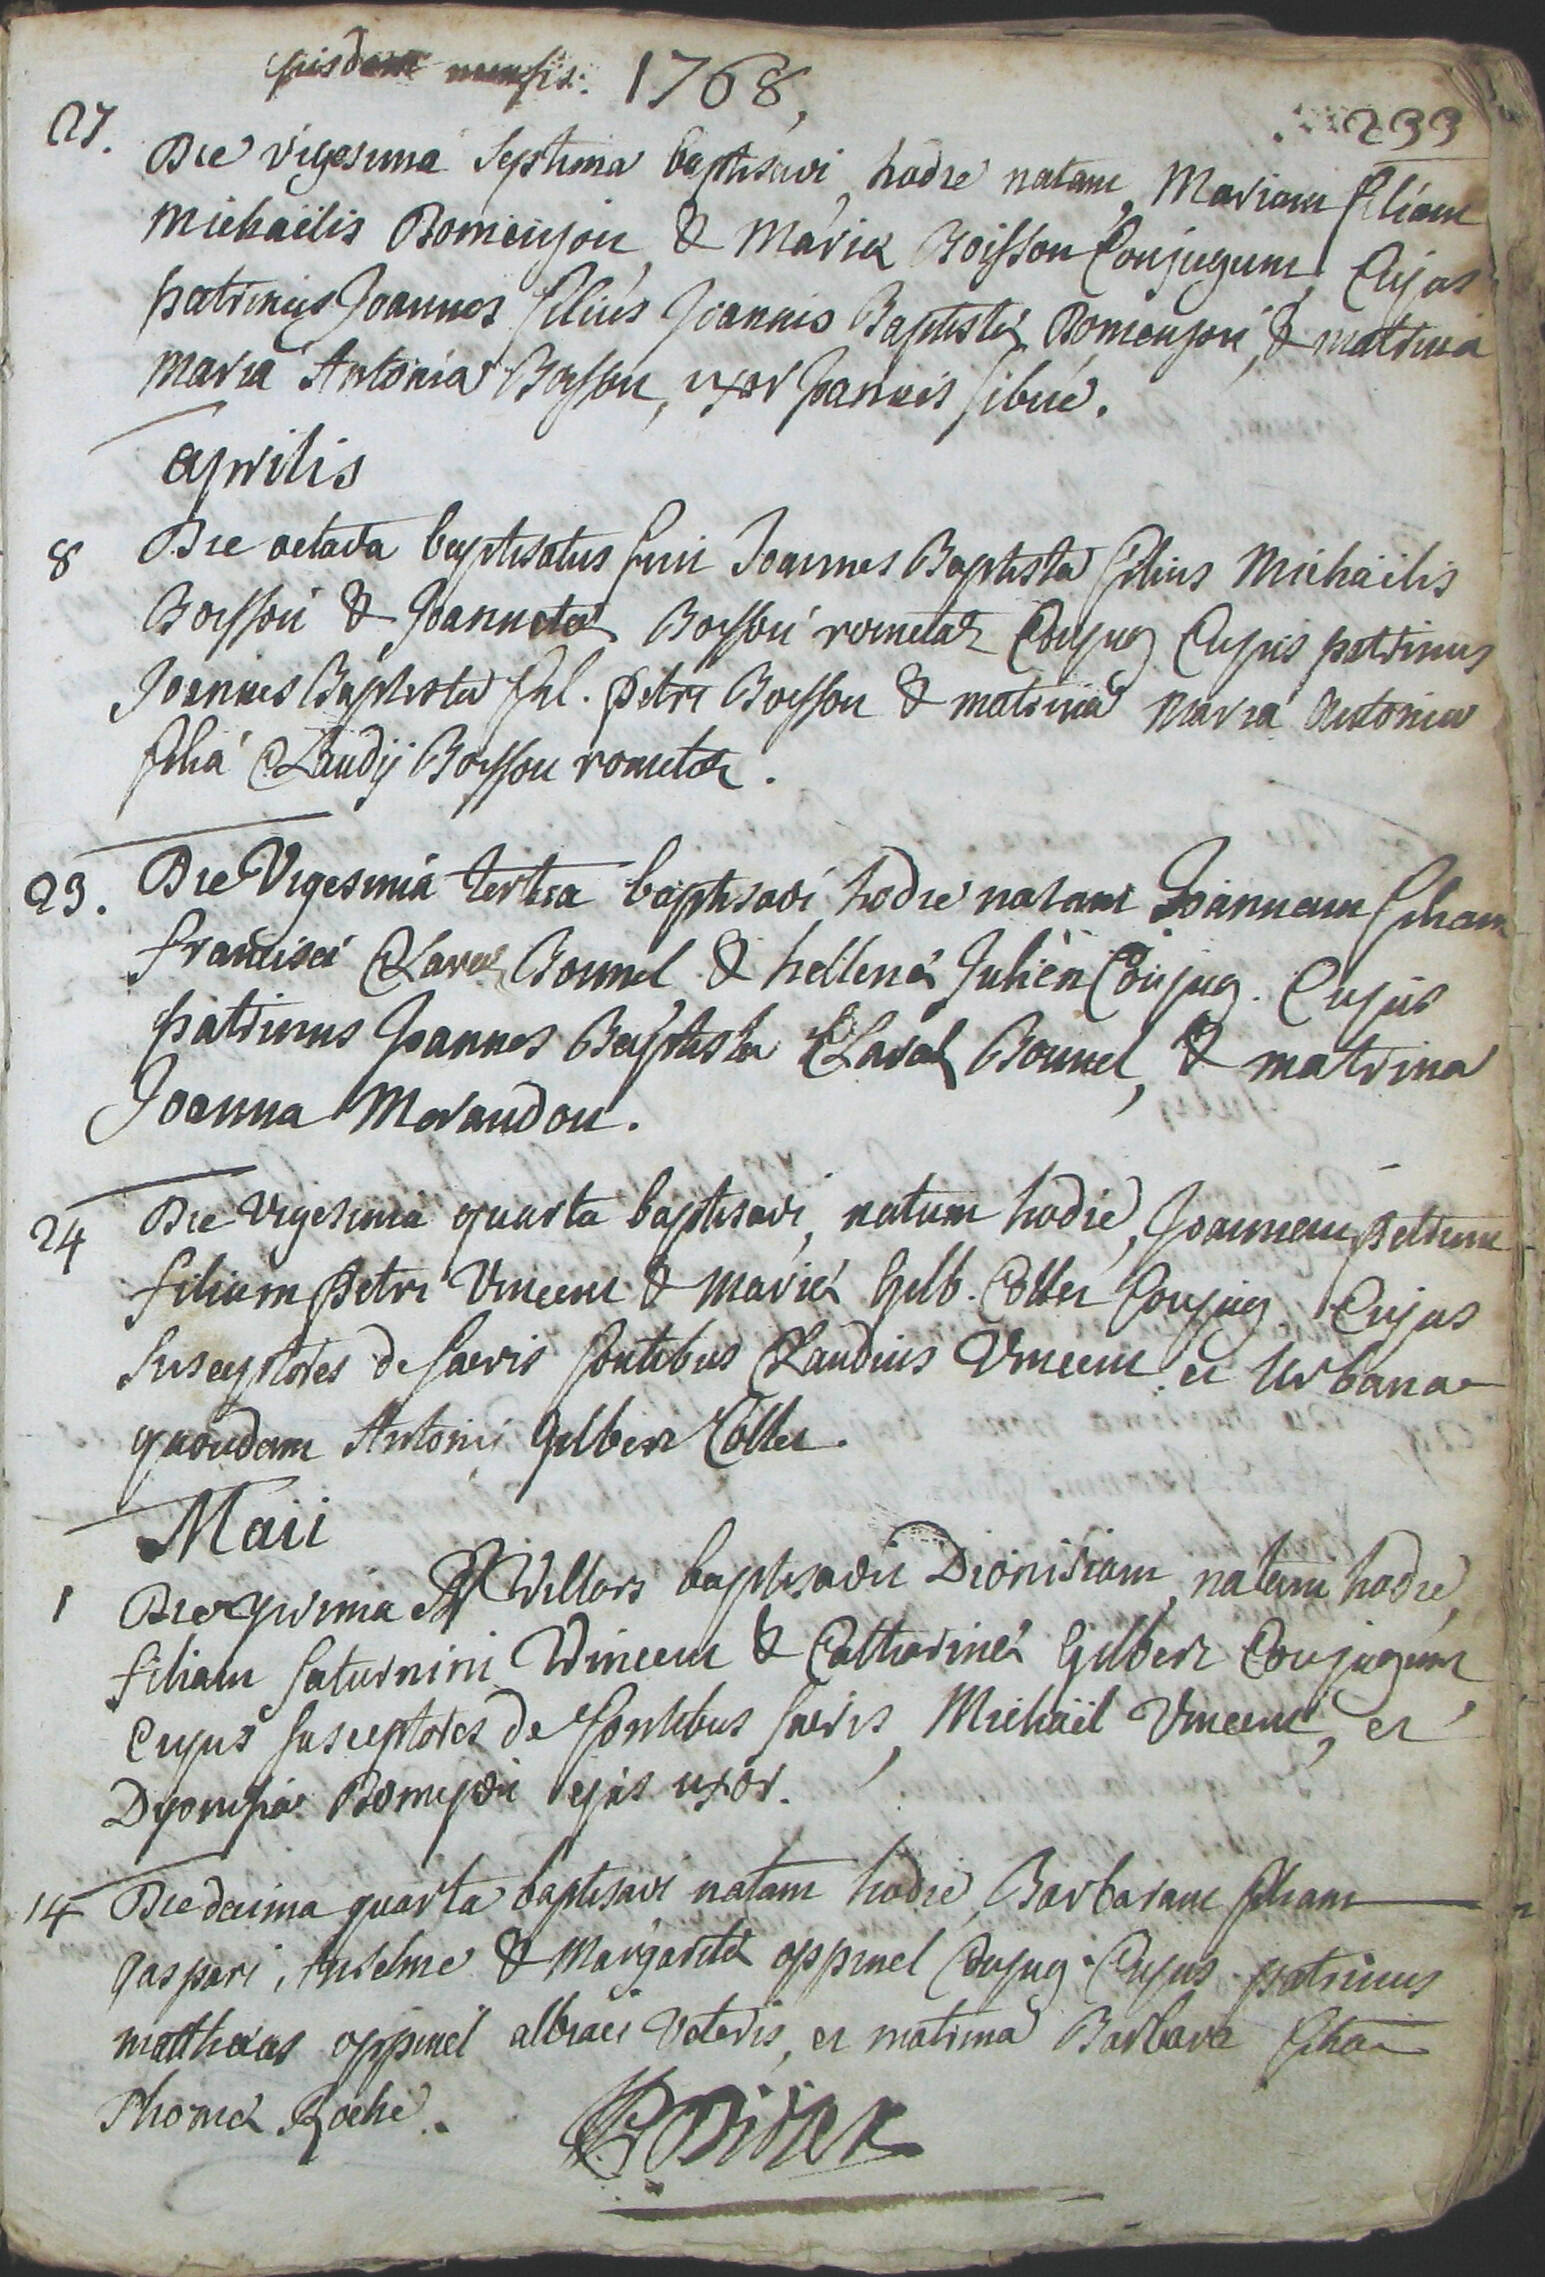 ejusdem mensis. 1768,
233
27. Die vigesima septima baptisavi, hodie natam, Mariam filiam
Michaëlis Bomenjon & Mariæ Boisson Conjugum, Cujus
patrinus Joannes filius Joannis Baptistæ Bomenjon, & matrina
Maria Antonia Boisson, uxor Joannis sibué.
aprilis
8 Die octava baptisatus fuit Joannes Baptista filius Michäelis
Boisson & Joannetæ Boisson rometaz Conjug Cujus patrinus
Joannes Baptista fil. Petri Boisson & matrina Maria Antonia
filia Claudij Boisson rometaz.
23. Die Vigesima tertia baptisavi hodie natam Joannam filiam
francisci Claraz Bonnel & hellenæ Julien Conjug. Cujus
patrinus Joannes Baptista Claraz Bonnel, & matrina
Joanna Morandon.
24 Die vigesima quarta baptisavi, natum hodie, Joannem Petrum
filium Petri Vincent & Mariæ Gilb. Collet Conjug. Cujus
susceptores de sacris fontibus Claudius Vincent et Urbana
quondam Antonii Gilbert Collet.
Maii
1 Die prima Villars baptisavit Dionisiam, natam hodie,
filiam Saturnini Vincent & Catharinæ Gilbert Conjugum,
cujus susceptores de fontibus sacris, Michaël Vincent, et
Dyonisia ejus uxor.
14 Die decima quarta baptisavi natam hodie, Barbaram filiam
gaspari, Anselme & Margaritæ oppinel Conjug. Cujus patrinus
mattheas oppinel albiaci veteris, et matrina Barbara filia
Thomæ Roche.